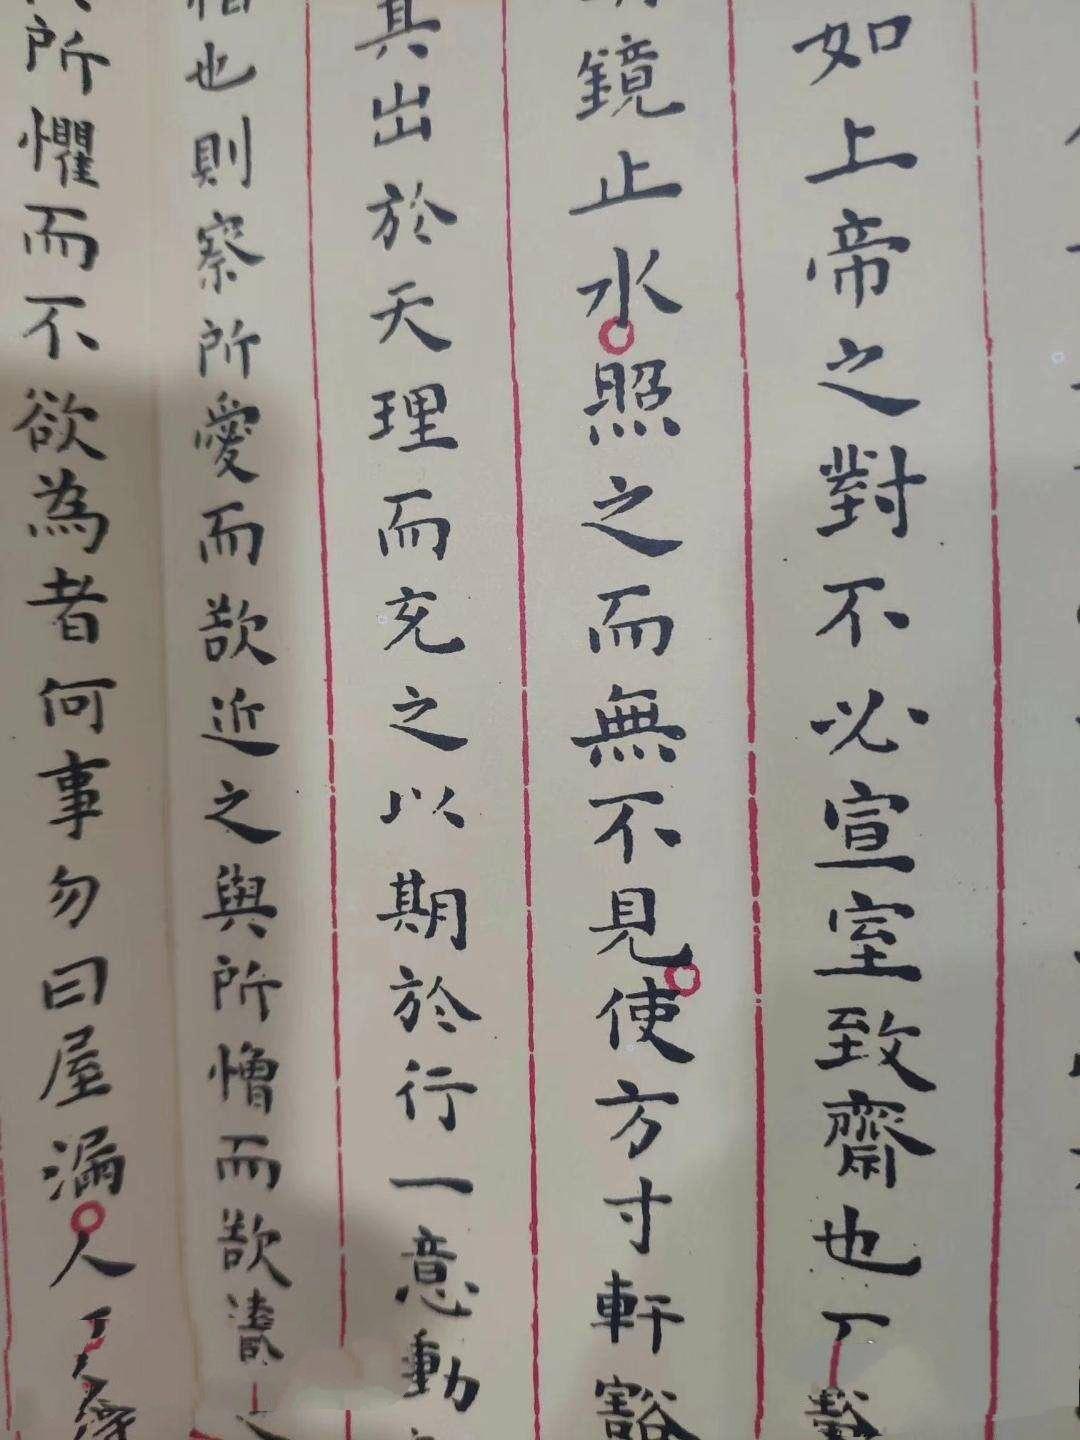 如上帝之對不必宣室致齋也
鏡止水照之而無不見使方寸軒豁
其出於天理而充之以期於行一意動
也則察所愛而欲近之與所憎而欲
所懼而不欲為者何事勿曰屋漏人